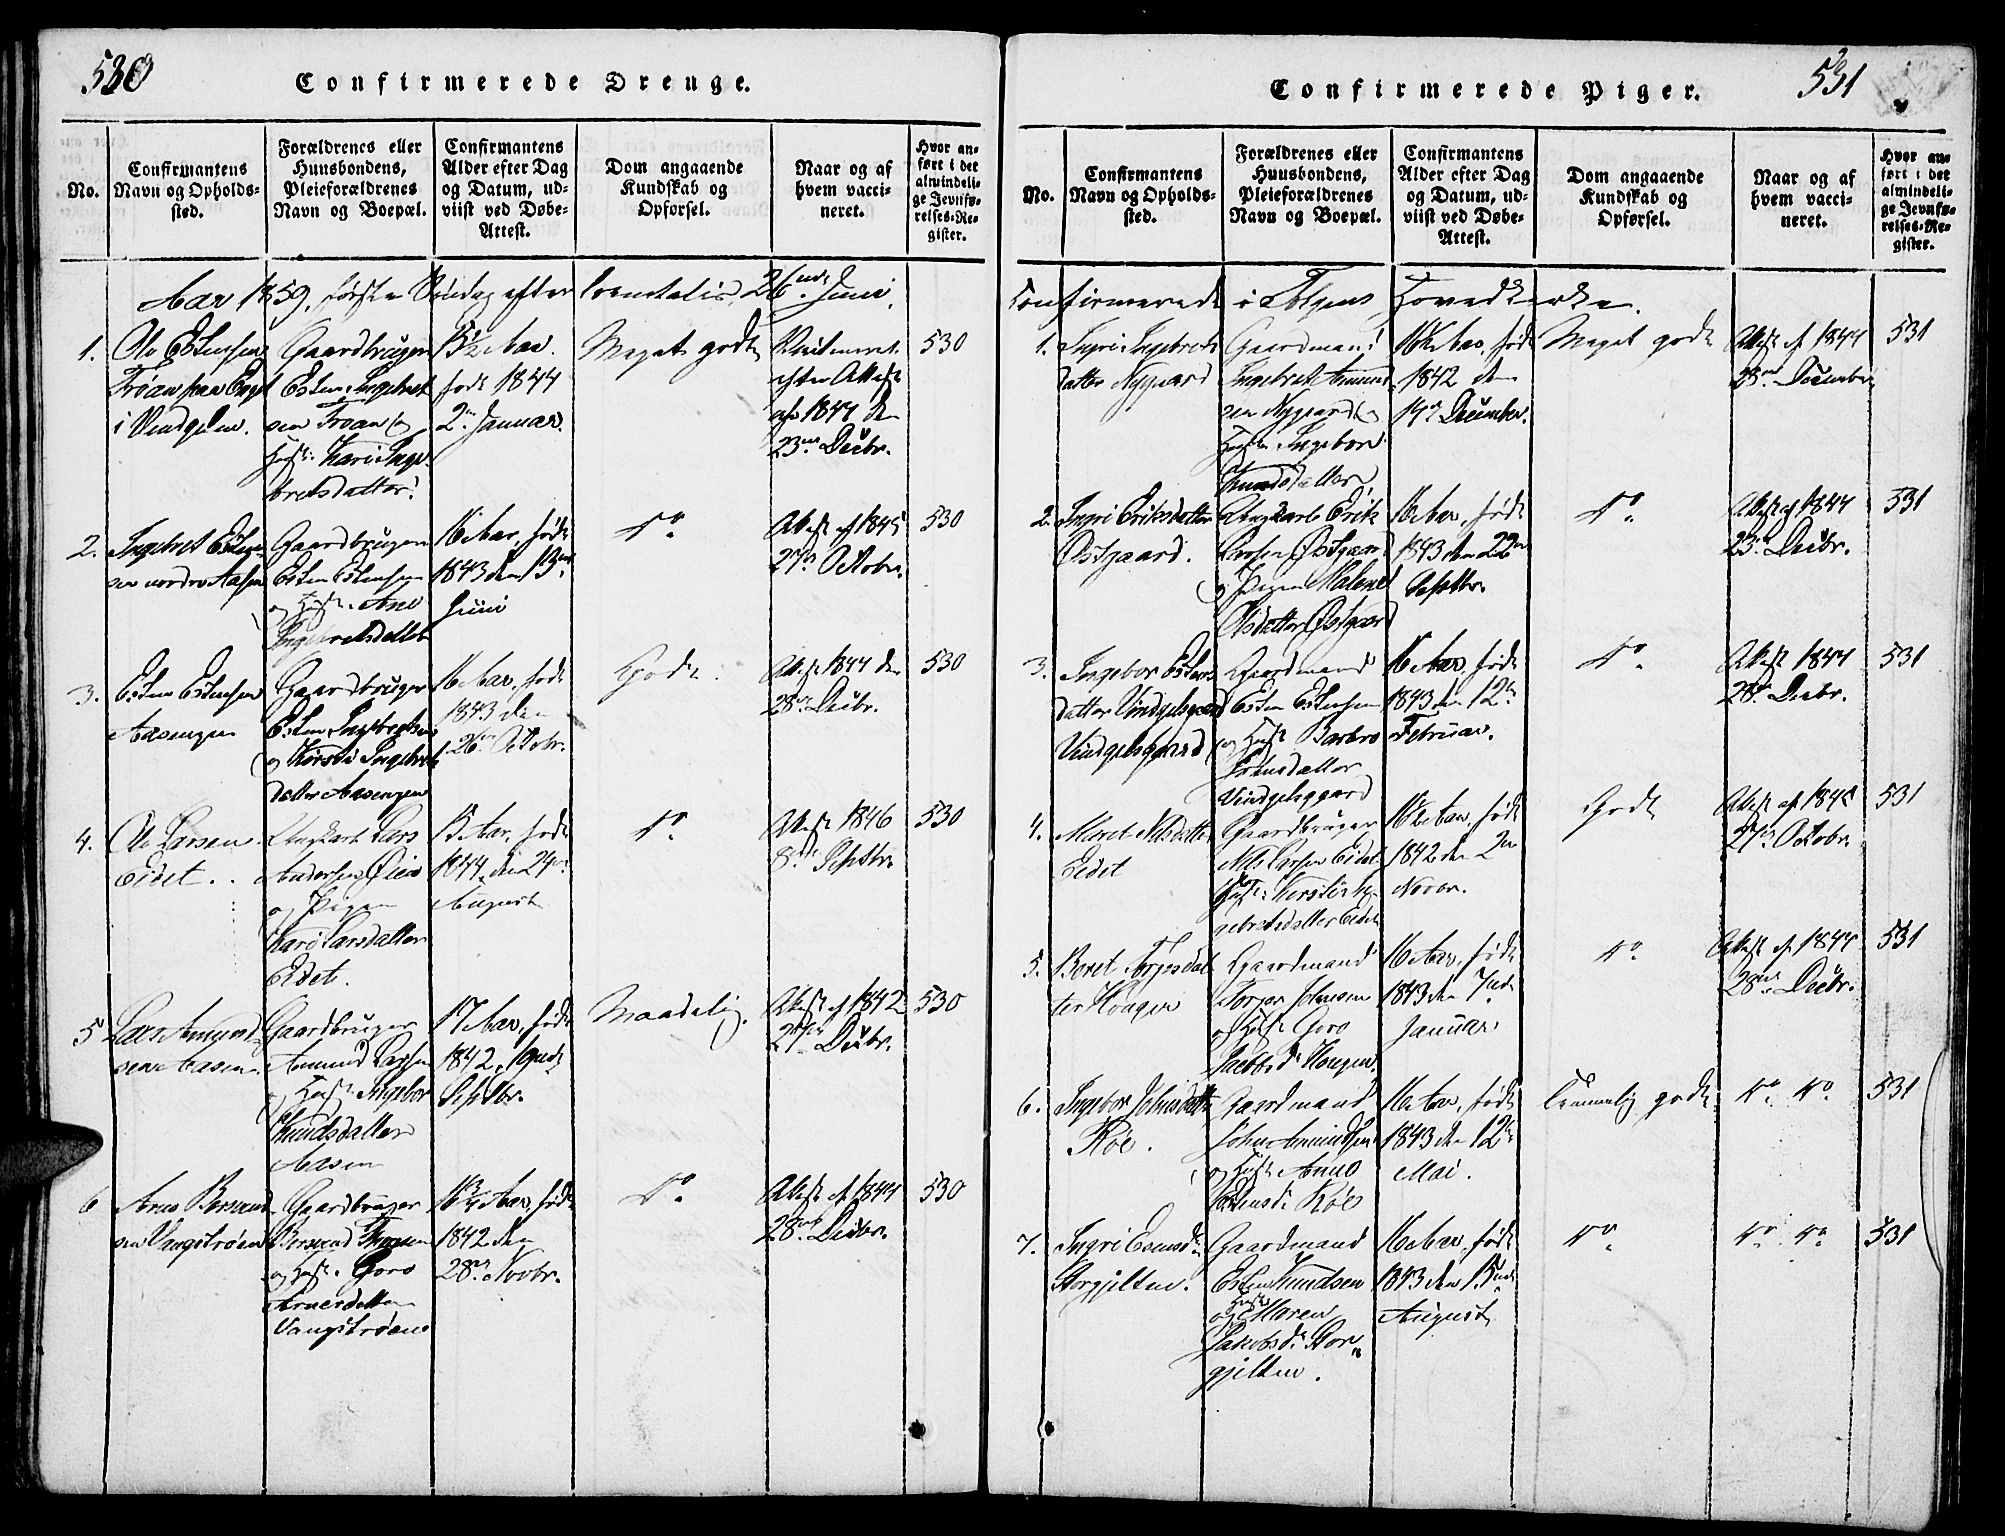 530
Confirmerede Drenge.
No.
Confirmantens
Navn og Opholds-
sted.
Forældrenes eller
Huusbondens,
Pleieforældrenes
Navn og Boepæl.
Confirmantens
Alder efter Dag
og Datum, ud-
viist ved Døbe-
Attest.
Dom angaaende
Kundskab og
Opførsel.
Naar og af
hvem vacci-
neret.
Hvor an-
ført i det
almindeli-
ge Jevnfø-
relses-Re-
gister.
Aar 1859, første Søndag efter Trinitatis, 26de Juni,
1.
Ole Estensen
Trøan paa Enget
i Vindgelen.
Gaardbruger
Esten Ingebret
sen Troan og
Hust. Kari Inge-
bretsdatter.
15½ Aar.
født 1844
2. Januar.
Meget godt
Vaccineret
efter Attest
af 1844 den
23de Decbr.
530
2.
Ingebret Esten-
sen nordre Aasen
Gaardbruger
Esten Estensen
og Hust. Ane
Ingebretsdatter
16 Aar, født
1843 den 13de
Juni
do
Attest af 1845
27de Octobr.
530
3.
Esten Estensen
Aasengen
Gaardbruger
Esten Ingebretsen
og Kirsti Ingebrets
datter Aasengen
16 Aar, født
1843 den
26de Octobr.
Godt.
Attest 1844 den
28de Decbr.
530
4.
Ole Larsen
Eidet.
Ungkarl Lars
Andersen Øien
og Pigen
Kari Larsdatter
Eidet.
15 Aar, født
1844, den 24de
August
do
Attest 1846
8de Septbr.
530
5
Lars Amund-
sen Aasen
Gaardbruger
Amund Larsen
og Hust. Ingebor
Knudsdatter
Aasen
17 Aar, født
1842, 19de
Septbr.
Maadelig.
Attest af 1842
27de Decbr.
530
6
Arne Bersvend
sen Vangstrøen
Gaardbruger
Bersvend
og Hust. Goro
Arnesdatter
Vangstrøen
16¾ Aar, født
1842 den
28de Novbr.
do
Attest af 1844
28de Decbr.
530
531
Confirmerede Piger.
No.
Confirmantens
Navn og Opholds-
sted.
Forældrenes eller
Huusbondens,
Pleieforældrenes
Navn og Boepæl.
Confirmantens
Alder efter Dag
og Datum, ud-
viist ved Døbe-
Attest.
Dom angaaende
Kundskab og
Opførsel.
Naar og af
hvem vacci-
neret.
Hvor an-
ført i det
almindeli-
ge Jevnfø-
relses-Re-
gister.
Confirmerede i Tolgens Hovedkirke.
1.
Ingri Ingebrets
datter Nygaard
Gaardmand
Ingebret Amund
sen Nygaard og
Hust. Ingebor
Knudsdatter
16½ Aar, født
1842 den
14de December.
Meget godt
Attest af 1844
23de Decembr
531
2.
Ingri Eriksdatter
Østgaard.
Ungkarl Erik
Larsen Østgaard
og Pigen Malene
Olsdatter Østgaard
16 Aar, født
1843 den 22de
Septbr.
do
Attest af 1844
23de Decbr.
531
3.
Ingebor Estens
datter Vindgelsgaard
Vindgelsgaard
Gaardmand
Esten Estensen
og Hust. Barbro
Vindgelsgaard
16 Aar, født
1843 den 12te
Februar.
do
Attest 1844
28de Decbr.
531
4.
Maret Nilsdatter
Eidet
Gaardbruger
Nils Larsen Eidet
og Hust. Kirsti In-
gebretsdatter Eidet
16½ Aar, født
1842 den 2den
Novbr.
Godt
Attest af 1845
27de Octobr.
531
5.
Beret Torgersdat
ter Hougen
Gaardmand
Torger Johnsen
og Hust. Goro
Jacobsd. Hougen.
16 Aar, født
1843 den 7nde
Januar
do
Attest af 1844
28de Decbr.
531
6.
Ingebor Johnsdatter
Røe.
Gaardmand
John Amundsen
og Hust. Anne
Røe
16 Aar, født
1843 den 12te
Mai.
Temmelig godt.
do do
531
7.
Ingri Estensd.
Storgjelten.
Gaardmand
Esten Knudsen
og Hust. Maren
Jakobsd. Stor-
gjelten.
16 Aar, født
1843 den 15nde
August
do
do do
531